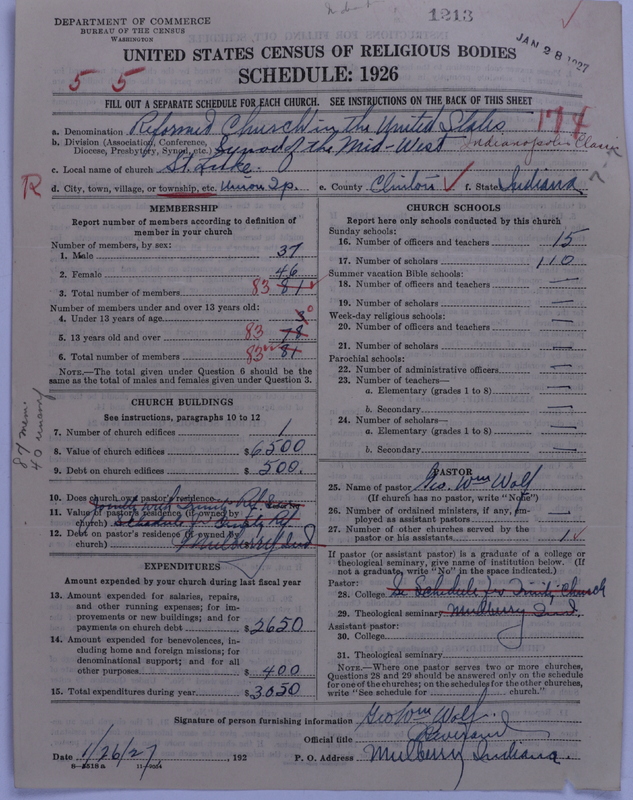 1213
DEPARTMENT OF COMMERCE
BUREAU OF THE CENSUS
WASHINGTON
JAN 28 1927
UNITED STATES CENSUS OF RELIGIOUS BODIES
5 5
SCHEDULE: 1926
FILL OUT A SEPARATE SCHEDULE FOR EACH CHURCH. SEE INSTRUCTIONS ON THE BACK OF THIS SHEET
a. Denomination Reformed Church in the United States 174
b. Division (Association, Conference, Diocese, Presbytery, Synod, etc.) Synod of the Mid-West Indianapolis Classis
c. Local name of church St. Luke.
R d. City, town, village, or township, etc. Union Tp. e. County Clinton ✓ f. State Indiana
MEMBERSHIP
Report number of members according to definition of
member in your church
Number of members, by sex:
1. Male 37
2. Female 46
3. Total number of members 83 81 ✓
Number of members under and over 13 years old:
4. Under 13 years of age 3 0
5. 13 years old and over 83 78
6. Total number of members 83 81
NOTE.—The total given under Question 6 should be the
same as the total of males and females given under Question 3.
87 mem.
40
CHURCH BUILDINGS
See instructions, paragraphs 10 to 12
7. Number of church edifices 1
8. Value of church edifices $6500
9. Debt on church edifices $500.
10. Does church own pastor's residence
Jointly with Trinity Ref.
11. Value of pastor's residence (if owned by
church) Schedule for Trinity Ref
12. Debt on pastor's residence (if owned by
church) Mulberry Ind
EXPENDITURES
Amount expended by your church during last fiscal year
13. Amount expended for salaries, repairs,
and other running expenses; for im-
provements or new buildings; and for
payments on church debt $2650
14. Amount expended for benevolences, in-
cluding home and foreign missions; for
denominational support; and for all
other purposes $400
15. Total expenditures during year $3050
CHURCH SCHOOLS
Report here only schools conducted by this church
Sunday schools:
16. Number of officers and teachers 15
17. Number of scholars 110
Summer vacation Bible schools:
18. Number of officers and teachers —
19. Number of scholars —
Week-day religious schools:
20. Number of officers and teachers —
21. Number of scholars —
Parochial schools:
22. Number of administrative officers —
23. Number of teachers—
a. Elementary (grades 1 to 8) —
b. Secondary —
24. Number of scholars—
a. Elementary (grades 1 to 8) —
b. Secondary —
PASTOR
25. Name of pastor Geo. Wm Wolf
(If church has no pastor, write "None")
26. Number of ordained ministers, if any, em-
ployed as assistant pastors —
27. Number of other churches served by the
pastor or his assistants 1 ✓
If pastor (or assistant pastor) is a graduate of a college or
theological seminary, give name of institution below. (If
not a graduate, write "No" in the space indicated.)
Pastor:
28. College Se Schedule for Trinity Church
29. Theological seminary Mulberry Ind.
Assistant pastor:
30. College
31. Theological seminary
NOTE.—Where one pastor serves two or more churches,
Questions 28 and 29 should be answered only on the schedule
for one of the churches; on the schedules for the other churches,
write "See schedule for church."
Signature of person furnishing information Geo Wm Wolf.
Official title Reverend
Date 1/26/27, 192 P. O. Address Mulberry Indiana.
8—3518a 11—9054